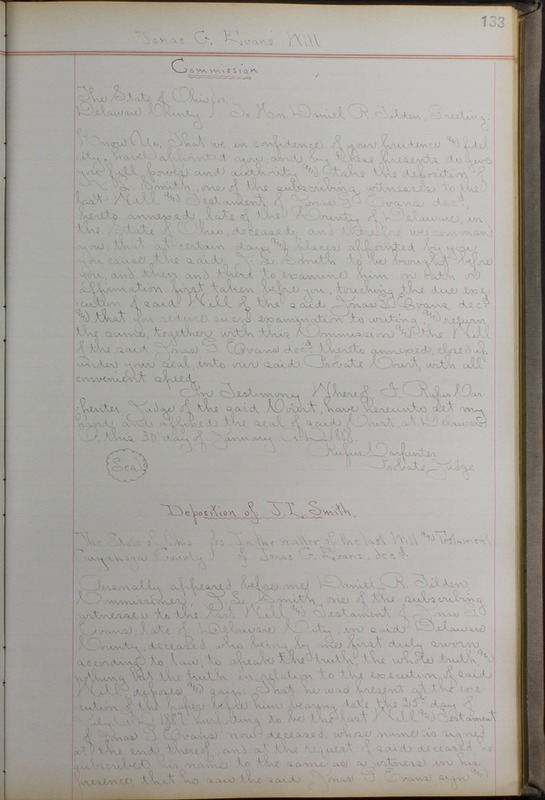 133
Jonas G. Evans' Will
Commission
The State of Ohio
Delaware County } To Hon. Daniel R. Tilden, Greeting:
Know Ye, That we in confidence of your prudence and fidel
ity, have appointed you, and by these presents do give
you full power and authority to take the deposition of
J. L. Smith, one of the subscribing witnesses to the
last Will and Testament of Jonas G. Evans decd
hereto annexed, late of the County of Delaware, in
the State of Ohio, deceased; and therefore we command
you, that at certain days and places appointed by you,
you cause the said J. L. Smith to be brought before
you, and then and there to examine him on oath or
affirmation first taken before you, touching the due exe
cution of said Will of the said Jonas G. Evans, decd
and that you reduce such examination to writing and return
the same, together with this Commission and the Will
of the said Jonas G. Evans decd thereto annexed, closed up
under your seal, into our said Probate Court, with all
convenient speed.
In Testimony Whereof, I, Rufus Car
penter, Judge of the said Court, have hereunto set my
hand, and affixed the seal of said Court, at Delaware
O. this 30 day of January
Rufus Carpenter
Seal
Probate Judge
Deposition of J. L. Smith.
The State of Ohio } ss. In the matter of the last Will and Testament
Cuyahoga County } of Jonas G. Evans, decd.
Personally appeared before me, Daniel R. Tilden,
Commissioner, J. L. Smith, one of the subscribing
witnesses to the last Will and Testament of Jonas G.
Evans late of Delaware City, in said Delaware
County, deceased, who being by me first duly sworn
according to law, to speak the truth, the whole truth and
nothing but the truth in relation to the execution of said
Will, deposes and says: That he was present at the exe
cution of the paper before him bearing date the 25 day of
purporting to be the last Will and Testament
of Jonas G. Evans now deceased, whose name is signed
at the end thereof, and at the request of said deceased he
subscribed his name to the same as a witness in his
presence that he saw the said Jonas G. Evans sign and